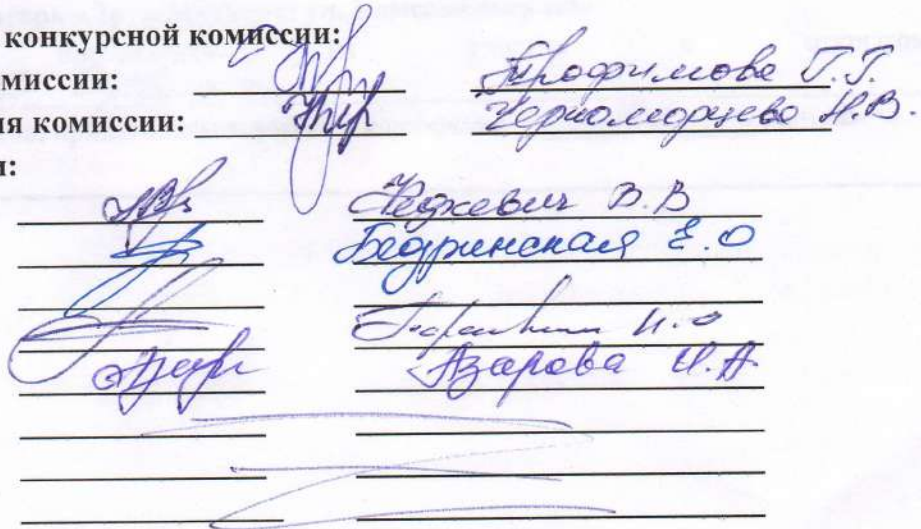 конкурсной комиссии:
миссии:
Трофимова Г.Г.
ия комиссии:
Черноморцева Н.В.
и:
В.В
Бедринская Е.О
И.О
Азарова И.А.